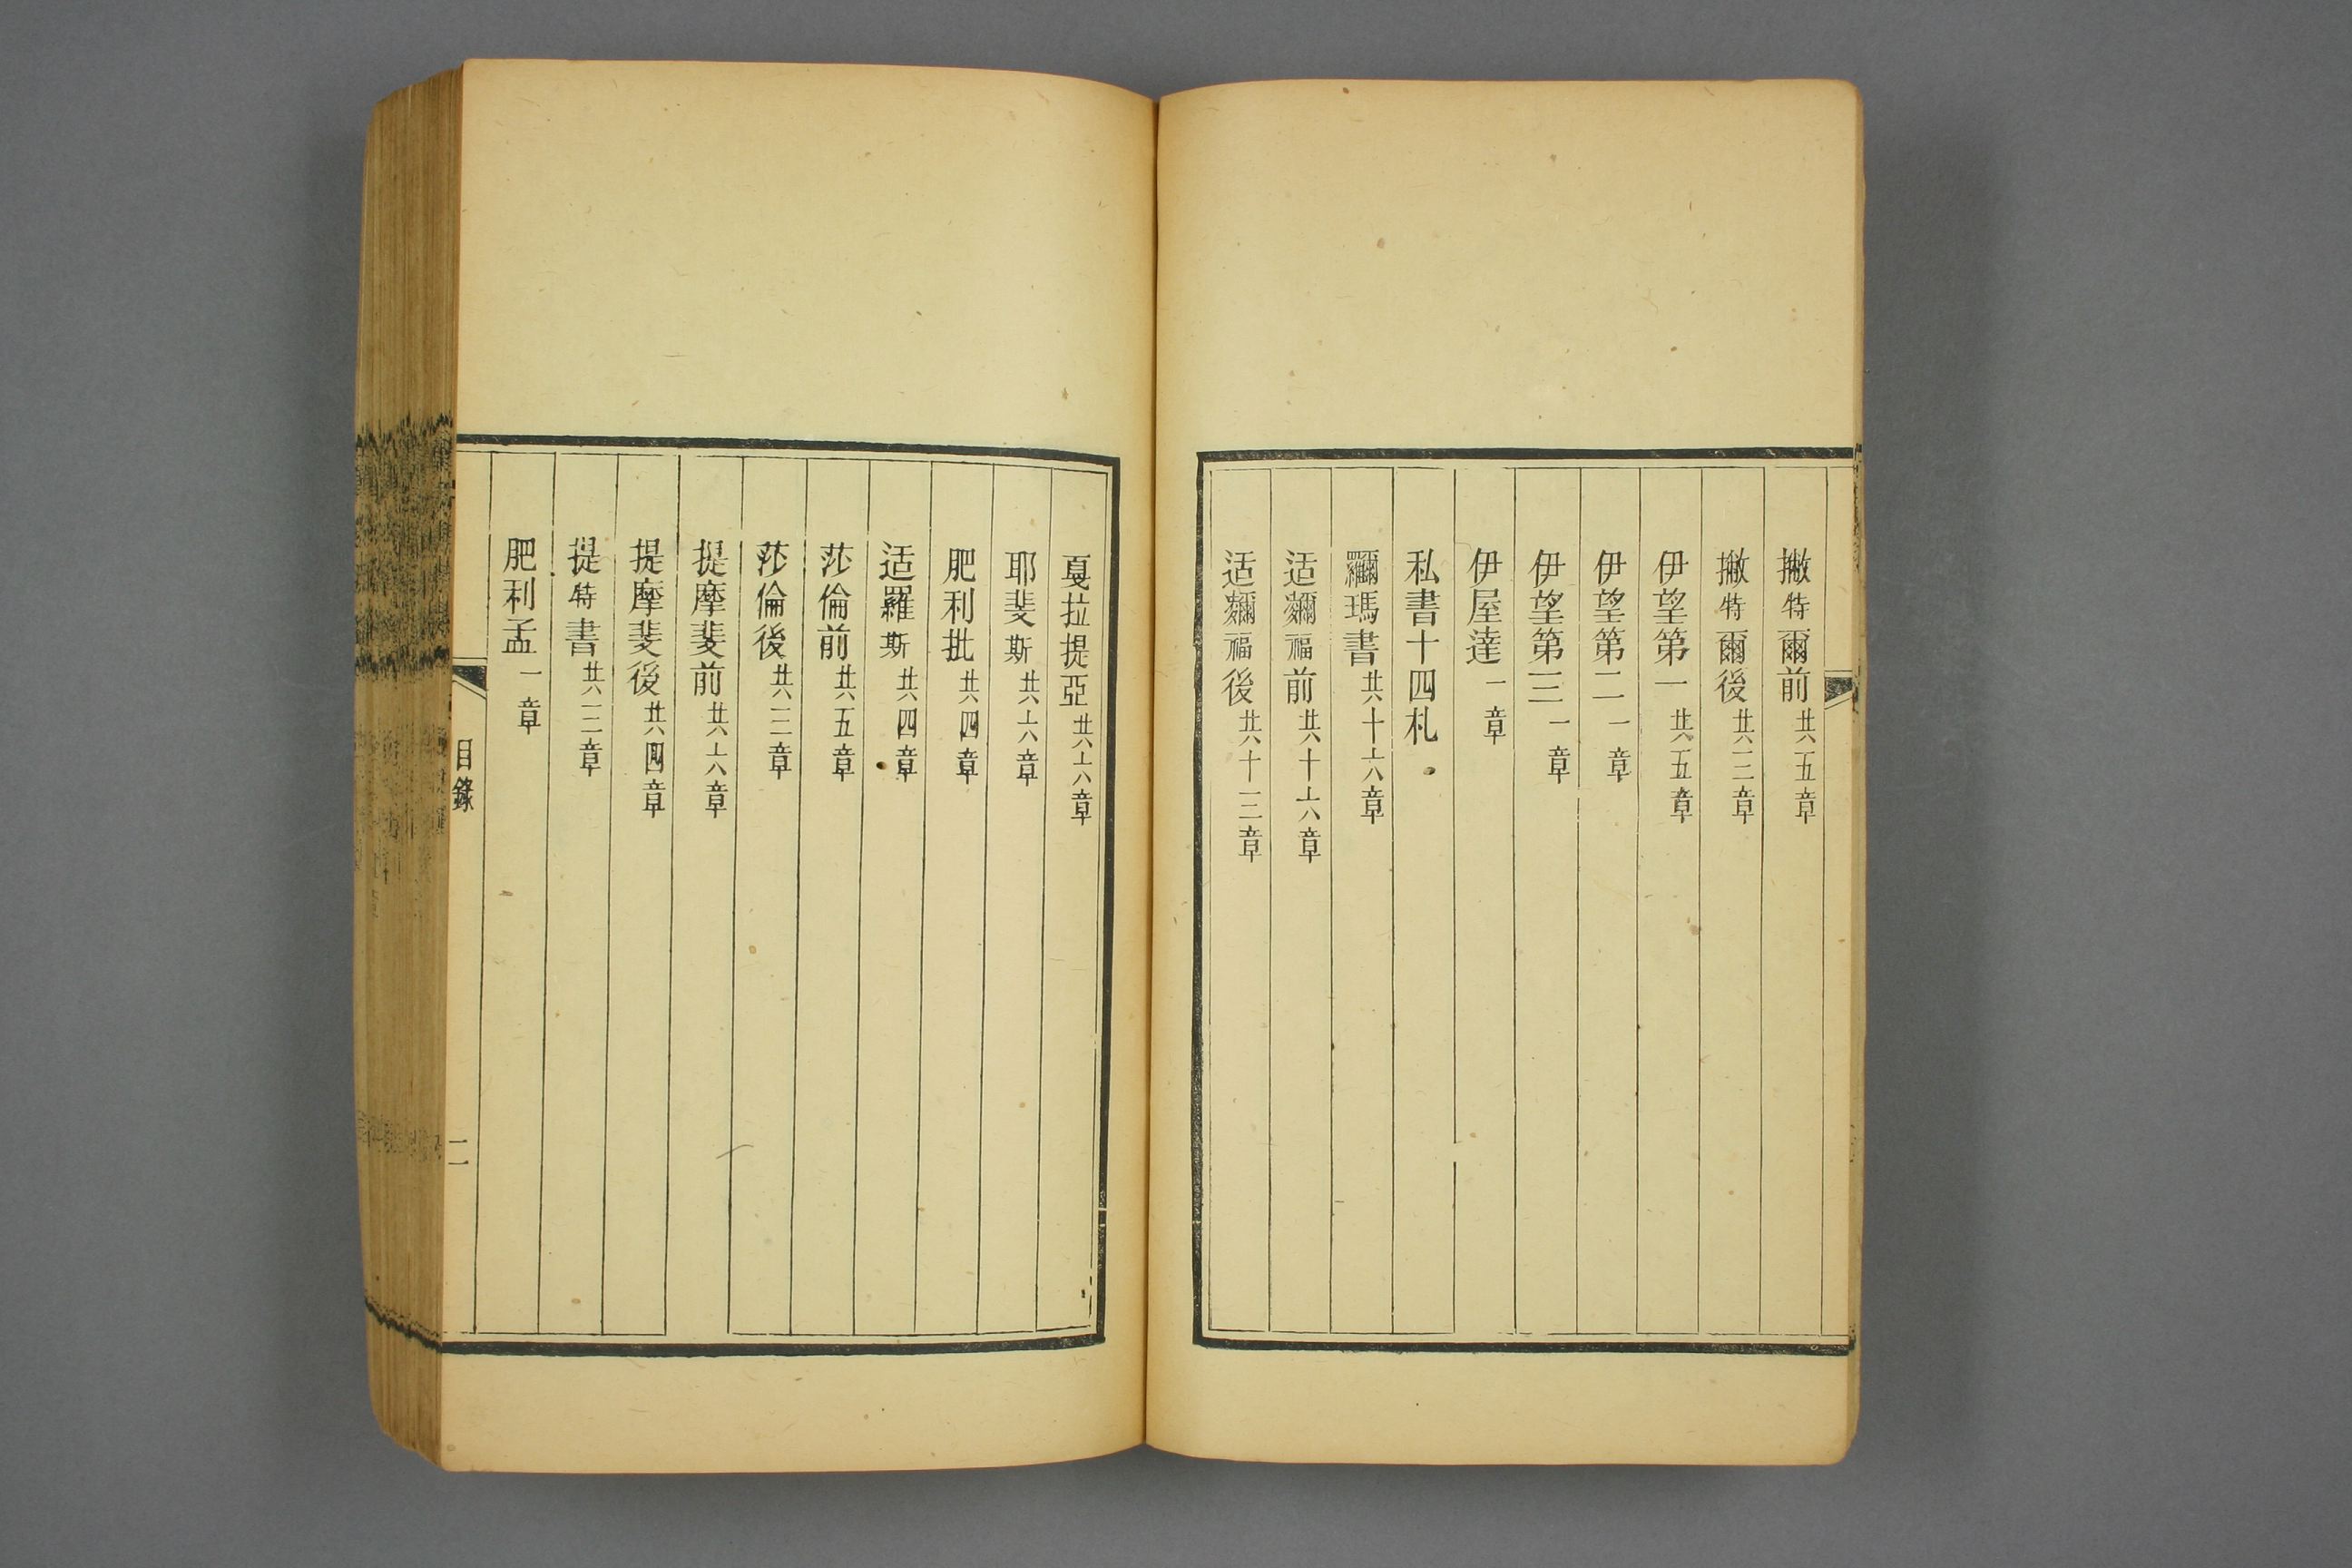 撇特爾前共五章
撇特爾後共三章
伊望第一共五章
伊望第二一章
伊望第三一章
伊屋達一章
私書十四札
瑪書共十六章
适福前共十六章
适福後共十三章
戛拉提亞共六章
耶斐斯共六章
肥利批共四章
适羅斯共四章
莎倫前共五章
莎倫後共三章
提摩斐前共六章
提摩斐後共四章
提特書共三章
肥利孟一章
目錄
二